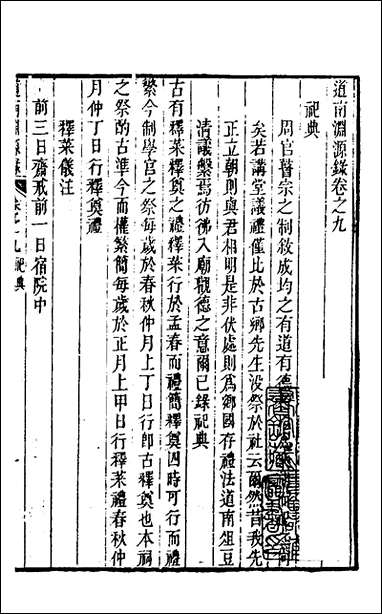 道南淵源錄卷之九
祀典
周官瞽宗之制敘成均之有道有德
矣若講堂議禮僅比於古鄉先生没祭於社云爾然昔我先
正立朝則與君相明是非伏處則為鄉國存禮法道南俎豆
清議繫焉彷彿入廟觀德之意爾已錄祀典
古有釋菜釋奠之禮釋菜行於孟春而禮簡釋奠四時可行而禮
繁今制學宮之祭每歲於春秋仲月上丁日行即古釋奠也本祠
之祭酌古準今而權繁簡每歲於正月上甲日行釋菜禮春秋仲
月仲丁日行釋奠禮
釋菜儀注
前三日齋戒前一日宿院中
道南淵源錄 卷之九祀典